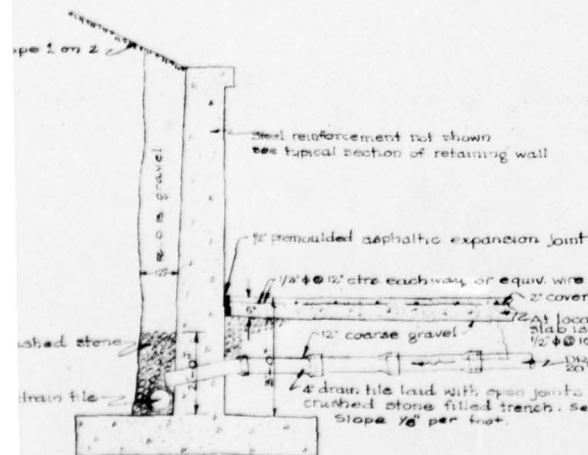 ope 1 on 2
Steel reinforcement not shown
see typical section of retaining wall
gravel
1/2" premoulded asphaltic expansion joint
12"
1/2" ϕ @ 12" ctrs each way or equiv. wire
2" cover
6"
At loca
slab is
1/2" ϕ @ 10
ushed stone
12" coarse gravel
20'
drain tile
4" drain tile laid with open joints
crushed stone filled trench. Se
Slope 1/8" per foot.